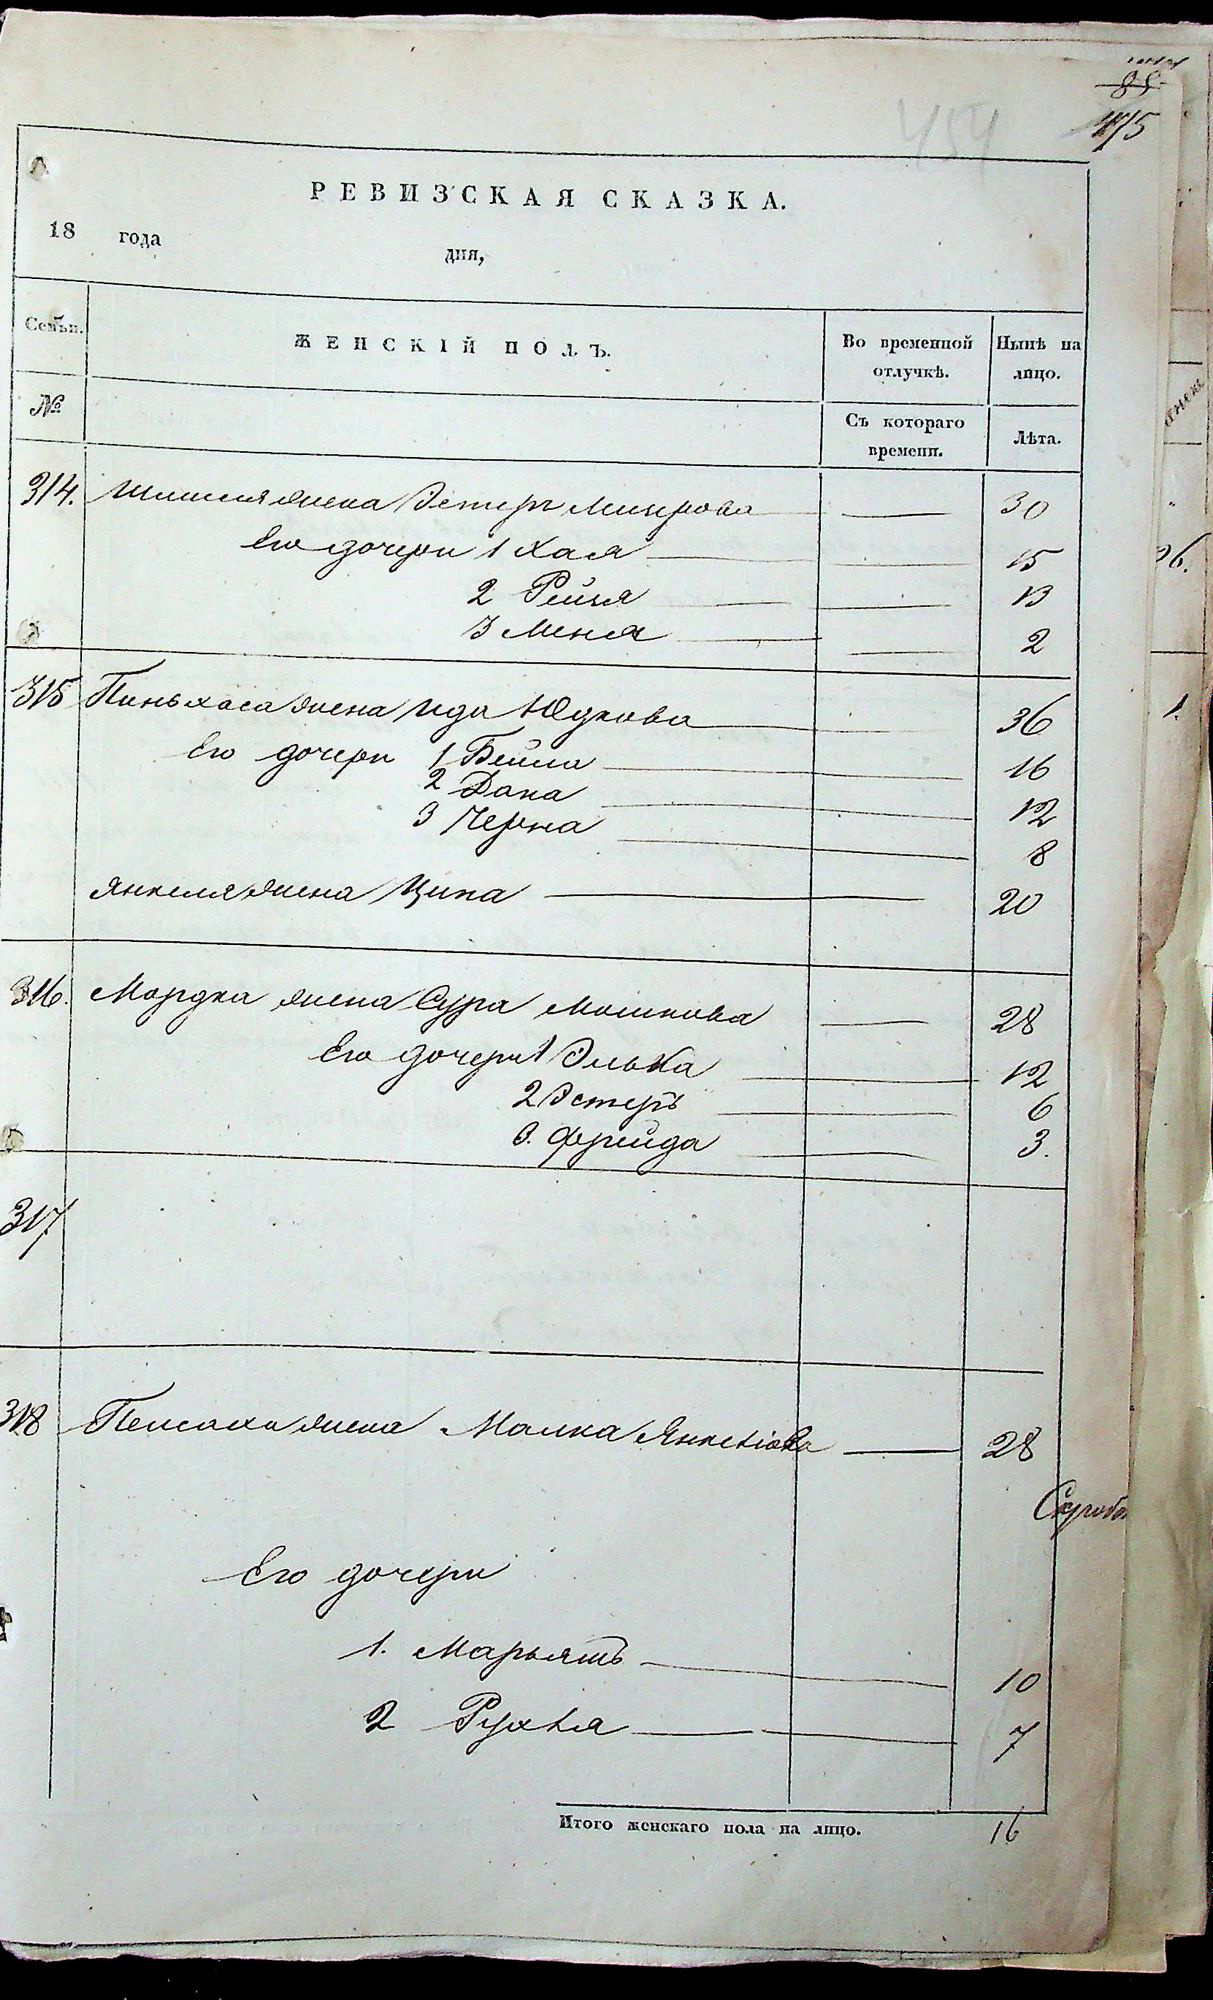 85
475
454
РЕВИЗСКАЯ СКАЗКА.
18 года
дня,
Семьи.
ЖЕНСКІЙ ПОЛЪ.
Во временной отлучкѣ.
Нынѣ на лицо.
№
Съ котораго времени.
Лѣта.
314. жена Эстеръ Меерова 30
Его дочери 1 Хая 15
2 Рейзя 13
3 Меня 2
315 Пиньхаса жена Ида Юдкова 36
Его дочери 1 Бейла 16
2 Дана 12
3 Черна 8
Янкеля жена Ципа 20
316. Мордка жена Сура Мошкова 28
Его дочери 1 Элька 12
2 Эстеръ 6
3. Фрейда 3.
317
318 Пейсаха жена Малка Янкелiова 28
Его дочери
1. Марьямъ 10
2 Рухля 7
Итого женскаго пола на лицо. 16